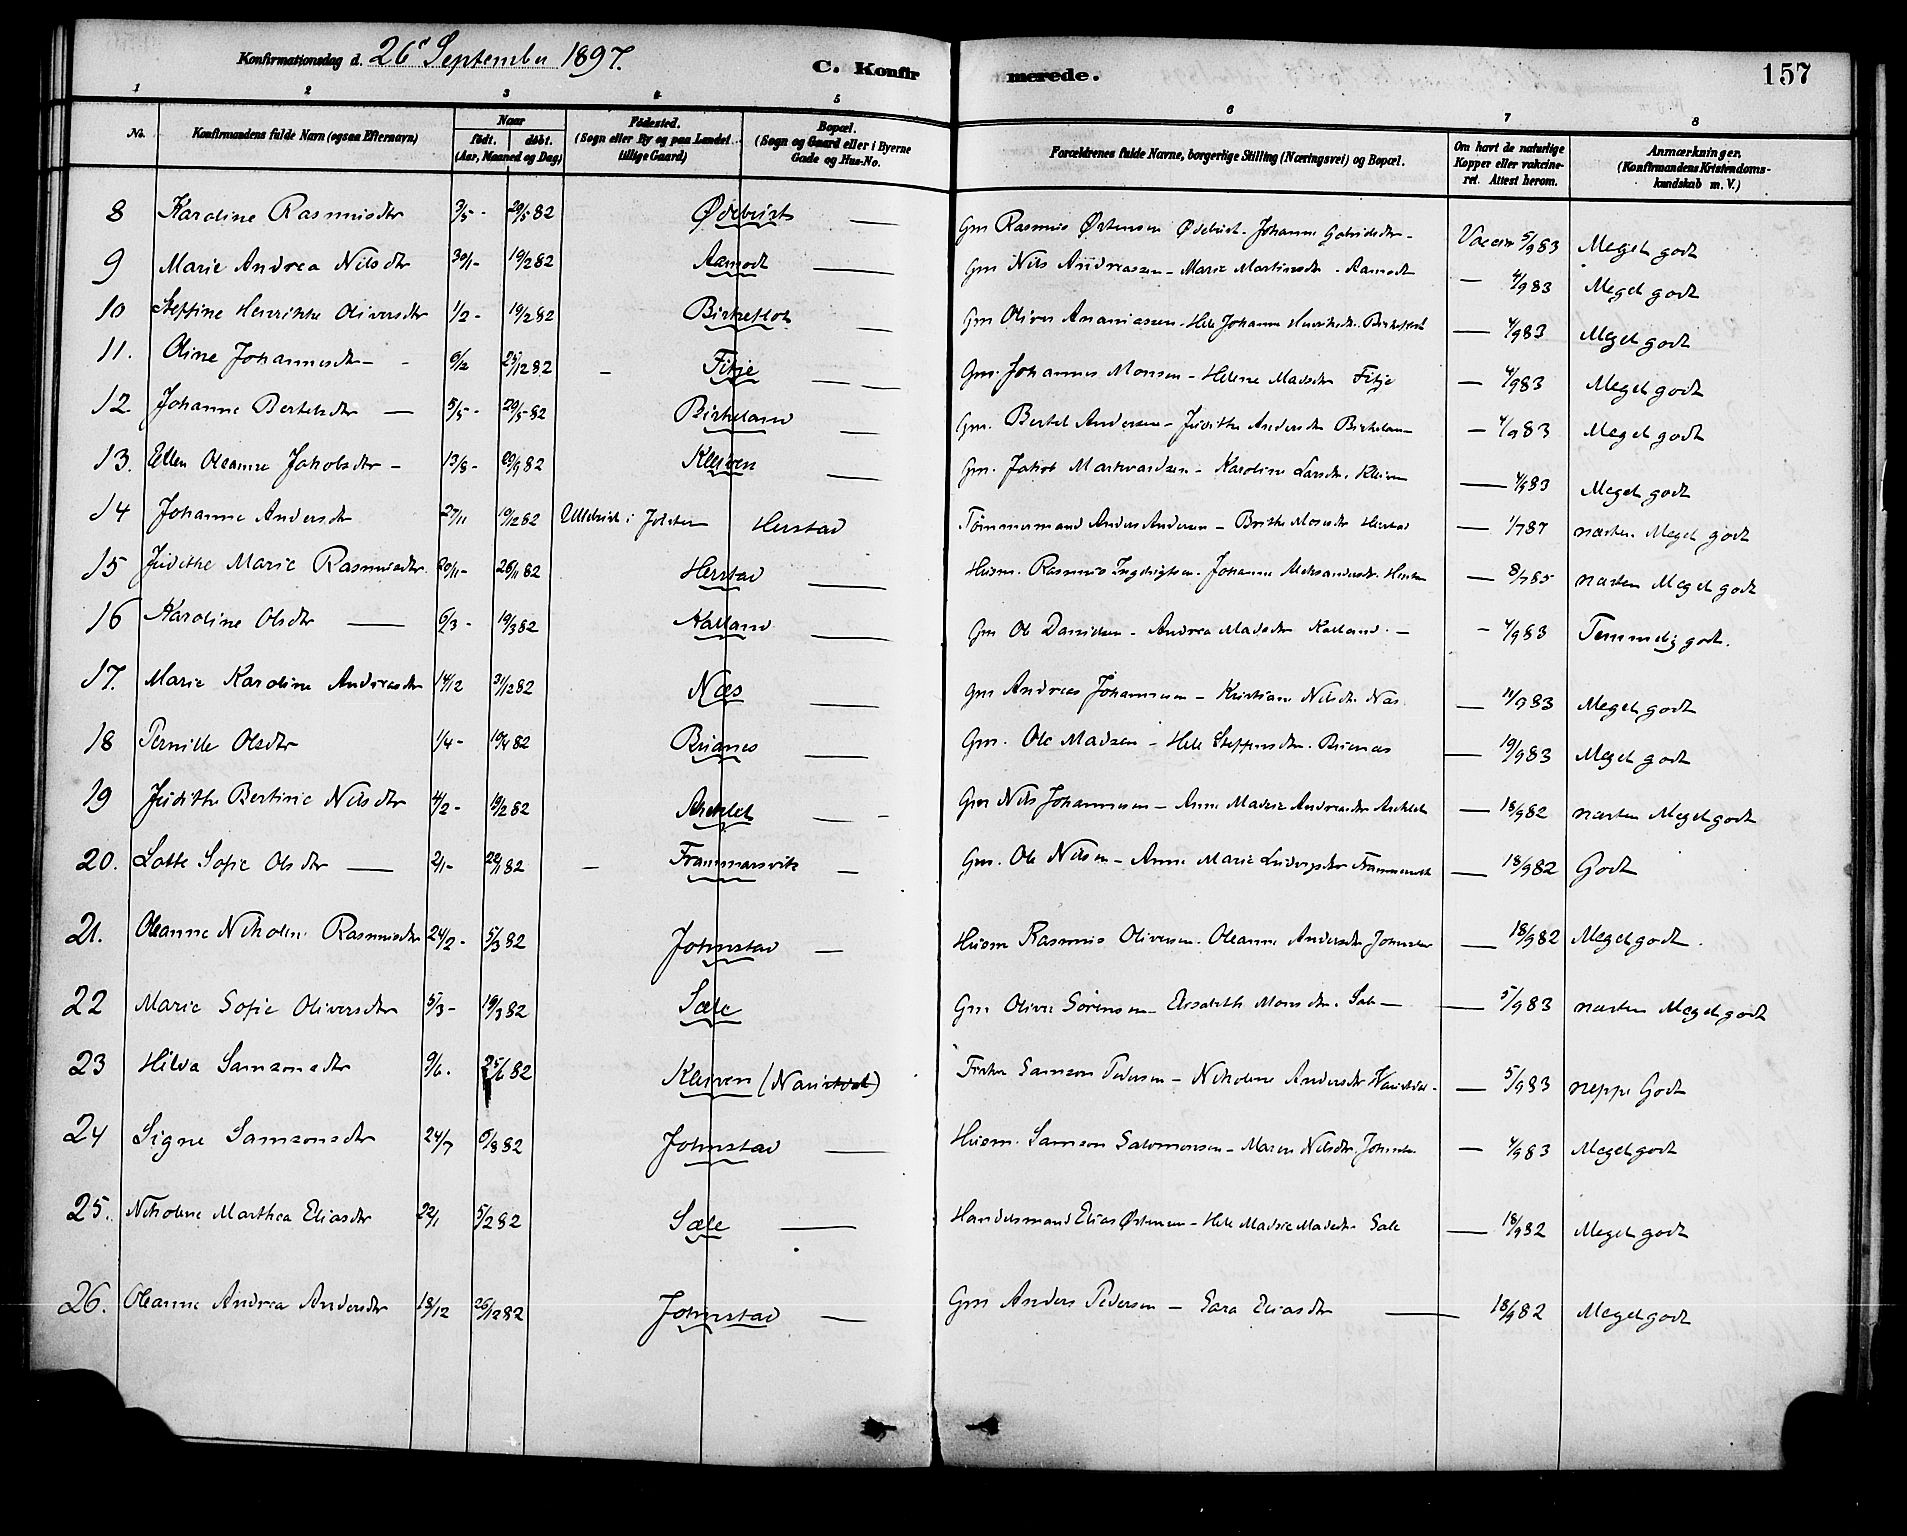 Konfirmationsdag d. 26' September 1897.
C. Konfirmerede.
157
1 2 3 4 5 6 7 8
No. Konfirmandens fulde Navn (ogsaa Efternavn) Naar födt. döbt. (Aar, Maaned og Dag) Födested. (Sogn eller By og paa Landet tillige Gaard) Bopæl. (Sogn og Gaard eller i Byerne Gade og Hus-No. Forældrenes fulde Navne, borgerlige Stilling (Næringsvei) og Bopæl. Om havt de naturlige Kopper eller vakcineret. Attest herom. Anmærkninger. (Konfirmandens Kristendomskundskab m. V.)
8 Karoline Rasmusdtr 3/5 - 29/5 82 Ødebust — Gm Rasmus Østensen Johanne Vaccin 5/9 83 Meget godt
9 Marie Andrea Nilsdtr 30/1 - 19/2 82 Aamodt — Gm Nils Andreassen - Marie Martinsdtr - Aamodt — 4/9 83 Meget godt
10 Steffine Henrikke Oliversdtr 1/2 - 19/2 82 Birkeflot — Gm Oliver Ananiassen - Johanne — 4/9 83 Meget godt
11. Oline Johannesdtr - - 6/12 25/12 82 - Fitje — — Gm. Johannes Monsen - Helene Madsdtr Fitje — 4/9 83 Meget godt
12. Johanne Bertelsdtr — 5/5 - 29/5 82 Birkeland — Gm. Bertel Andersen - Judithe Andersdtr Birkeland — 4/9 83 Meget godt
13. Ellen Oleanne Jakobsdtr - 13/8 - 20/9 82 Kleiven — Gm. Jakob - Karoline Larsdtr. Kleiven — 4/9 83 Meget godt
14 Johanne Andersdtr 27/11 19/12 82 i Jølster Herstad Tömmermand Anders Andersen - Brithe Mosesdtr Herstad — 1/7 87 næsten Meget godt
15 Judithe Marie Rasmusdtr 20/11 - 26/11 82 Herstad — Husm. Rasmus Johanne Aleksandersdtr. — 8/7 85 næsten Meget godt
16 Karoline Olsdtr — 6/3 - 19/3 82 Kalland — Gm Ole Danielsen - Andrea Madsdtr Kalland. — - 4/9 83 Temmelig godt.
17. Marie Karoline Andreasdtr 14/12 31/12 82 Næs — Gm Andreas Johannessen - Kristiane Nilsdtr Næs — 11/9 83 Meget godt
18 Pernille Olsdtr 1/4 - 10/4 82 — Gm. Ole Madsen - Steffensdtr. — 19/9 83 Meget godt
19 Judithe Bertine Nilsdtr 4/2 - 19/2 82 Arklet — - Gm Nils Johannessen - Anne Andreasdtr Arklet — 18/9 82 næsten Meget godt
20. Lotte Sofie Olsdtr — 2/1 - 22/1 82 - Frammarsvik — Gm. Ole Nilsen - Anne Marie Ludvigsdtr — 18/9 82 Godt
21. Oleanne Nikoline Rasmusdtr 24/2 - 5/3 82 Johnstad — Husm Rasmus Oliversen. Oleanne Andersdtr Johnstad — 18/9 82 Meget godt.
22 Marie Sofie Oliversdtr 5/3 - 19/3 82 Sæle Gm Oliver Sörensen - Elisabeth Monsdtr. Sæle — — 5/9 83 næsten Meget godt
23 Hilda Samsonsdtr 9/6. 25/6 82 Kleiven Samson Pedersen - Nikoline Andersdtr — 5/9 83 neppe Godt
24 Signe Samsonsdtr 24/7 6/8 82 Johnstad — Husm. Samson Salomonsen - Maren Nilsdtr. — 4/9 83 Meget godt
25. Nikoline Marthea Eliasdtr 22/1 5/2 82 Sæle — Handelsmand Elias Østensen - Madsdtr. Sæle — 18/9 82 Meget godt
26. Oleanne Andrea Andersdtr 13/12 26/12 82 Johnstad — Gm Anders Pedersen - Sara Eliasdtr — 18/9 82 Meget godt